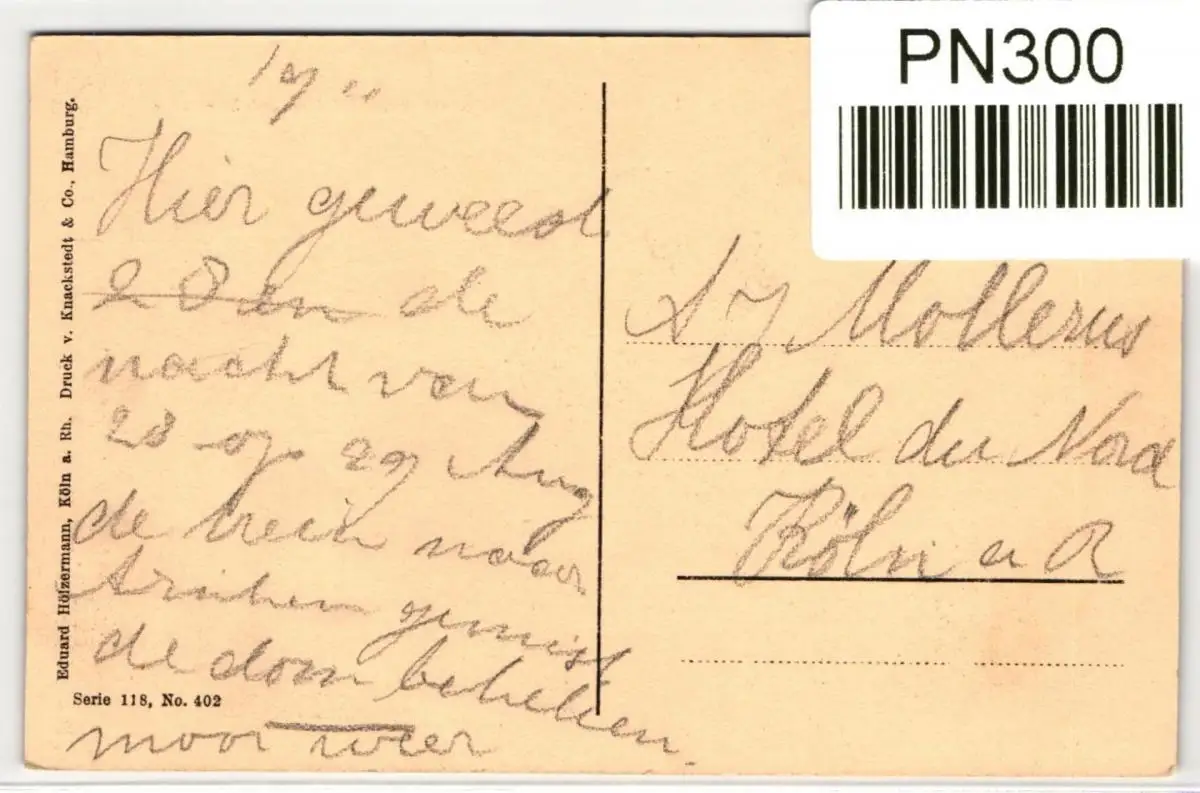 PN300
Eduard Holzermann, Köln a. Rh. Druck v. Knackstedt & Co., Hamburg.
Hier geweest
28 in de
nacht van
28 op 29 Aug
de trein naar
Arnhem gemist
de dom bekeken
mooi weer
Serie 118, No. 402
Mollerus
Hotel du Nord
Köln a R